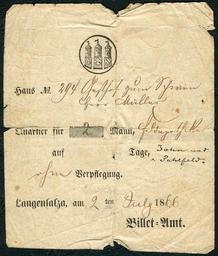 Haus № 294 Gasthof zum Schwan
Herr Müller
Quartier für 2 Mann,
auf Tage,
ohne Verpflegung.
Langensalza, am 2 ten July 1866
Billet-Amt.